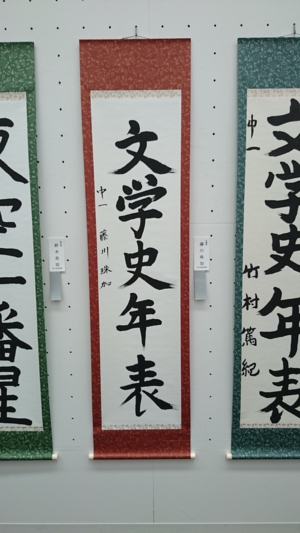 文学史年表
中一 藤川珠加
文学史年表
中一 竹村篤紀
空一番星